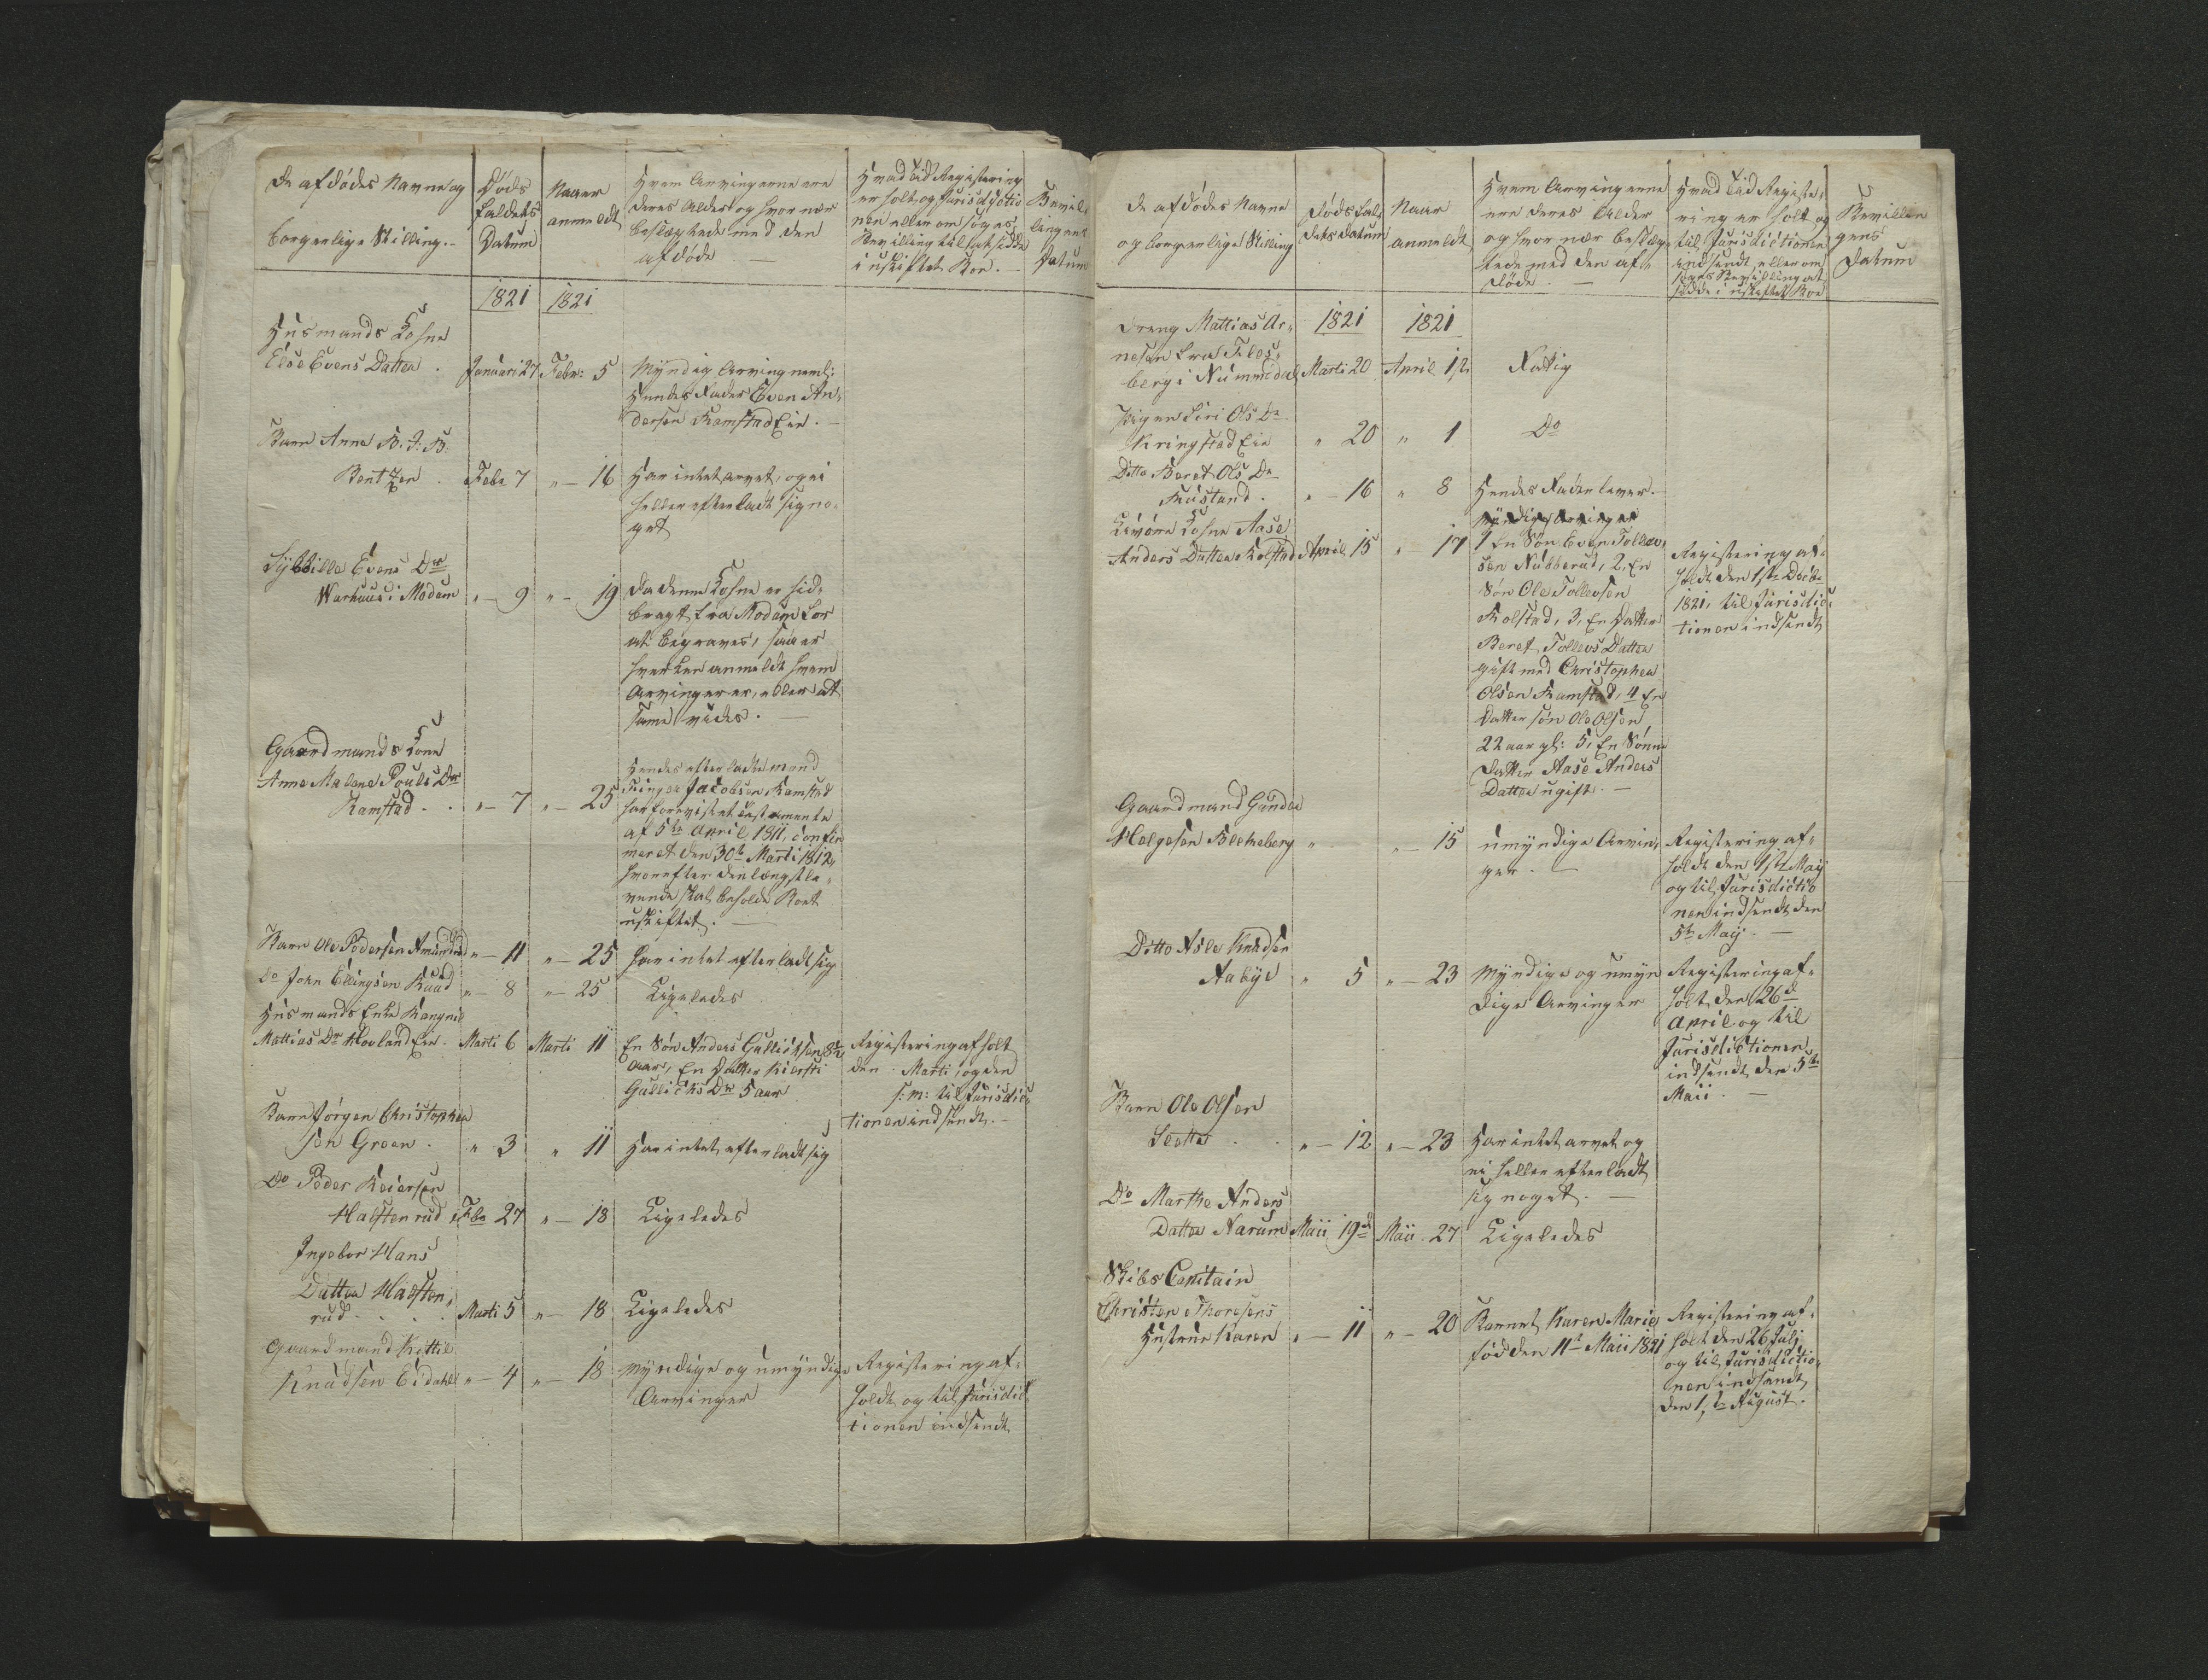 De afdødes Navne og
borgerlige Stilling.
Døds
faldets
Datum
Naar
anmeldt
Hvem Arvingerne ere
deres Alder og hvor nær
beslægtede med den
afdøde. —
Hvad tid Registering
er holt og Jurisdictio
nen eller om søges
Bevilling til at sidde
i uskiftet Boe. —
Bevil-
lingens
Datum
1821
1821
Huusmands Kohne
Else Evens Datter .
Januari 27
Febr: 5
Myndig Arving neml:
Hendes Fader Even An-
dersen Ramstad Eie. —
Barn Anna B. J. B.
Bentzen .
Febr 7
" — 16
Har intet arvet, og ei
heller efterladt sig no-
get
Sybbille Evens Dr
Warhuus i Modum
" — 9
" — 19
Da denne Kohne er hid-
bragt fra Modum for
at begraves, saa er
hverken anmeldt hvem
Arvinger er, eller at
same vides. —
Gaardmands Kone
Anne Malene Pouls Dr
Ramstad . .
" — 7
" — 25
Hendes efterladte mand
Jacobsen Ramstad
har forevist et Testamente
af 5te April 1811, confir
meret den 30te Marti 1812,
hvorefter den længstle-
vende skal beholde Boet
uskiftet. —
Barn Ole Pedersen Amundrud
" — 11
" — 25
har intet efterladt sig
Do John Ellingsen Ruud
" — 8
" — 25
Ligeledes
Huusmands Enke Rangnil
Mattias Dr Hovland Eie.
Marti 6
Marti 11
En Søn Anders Gullichsen 8½
Aar, En Datter Kiersti
Gullichs Dr 5 aar
Registering afholt
den Marti, og den
s: m: til Jurisdic-
tionen indsendt. —
Barn Jørgen Christopher
sen Groen .
" 3
" 11
Har intet efterladt sig
Do Peder Reiersen
Halstenrud
Febr 27
" — 18
Ligeledes
Ingebor Hans
Datter Halsten-
rud . . .
Marti 5
" — 18
Ligeledes
Gaardmand Kittil
Knudsen Eidahl
" — 4
" — 18
Myndige og umyndige
Arvinger
Registering af-
holdt og til Jurisdic
tionen indsendt
De afdødes Navne
og borgerlige Stilling
Dødsfal-
dets Datum
Naar
anmeldt
Hvem Arvingerne
ere deres Alder
og hvor nær beslæg-
tede med den af-
døde. —
Hvad tid Registe-
ring er holt og
til Jurisdictionen
indsendt eller om
søges Bevilling at
sidde i uskiftet Boe
Bevillin
gens
Datum
1821
1821
Dreng Mattias Ar-
nesen fra Fles-
berg i Nummedal
Marti 20
April 1ste
Fatig
Pigen Siri Ols Dr
Kringstad Eie
" 20
" 1
Do
Ditto Beret Ols Dr
Rustand .
" — 16
" 8
Hendes Fader lever. —
Livøre Kohne Aase
Anders Datter Kolstad
April 15
" — 17
Myndige Arvinger
1 En Søn Even Tollev-
sen Nubberud, 2, En
Søn Ole Tollevsen
Kolstad, 3, En Datter
Beret Tollevs Datter
gift med Christopher
Olsen Ramstad, 4 En
Datter søn Ole Olsen
22 aar gl: 5, En Sønne
Datter Aase Anders
Datter ugift. —
Registering af-
holdt den 1ste Decbr
1821, til Jurisdic-
tionen indsendt
Gaardmand Gunder
Helgesen Blekeberg
"
" — 15
umyndige Arvin-
ger. —
Registering af-
holdt den 1ste Maij
og til Jurisdictio
nen indsendt den
5te Maij. —
Ditto Asle Knudsen
Aabye
" 5
" — 23
Myndige og umyn
dige Arvinger
Registering af-
holt den 26d
April og til
Jurisdictionen
indsendt den 5te
Maii. —
Barn Ole Olsen
Sætte . .
" — 12
" — 23
Har intet arvet og
ei heller efterladt
sig noget. —
Do Marthe Anders
Datter Narum
Maii 19de
Maii 27
Ligeledes
Skibs Capitain
Christen Thoresens
Hustrue Karen
" — 11
" — 20
Barnet Karen Marie
fød den 11te Maii 1821
Registering af-
holt den 26 Julj
og til Jurisdictio-
nen indsendt
den 1ste August.